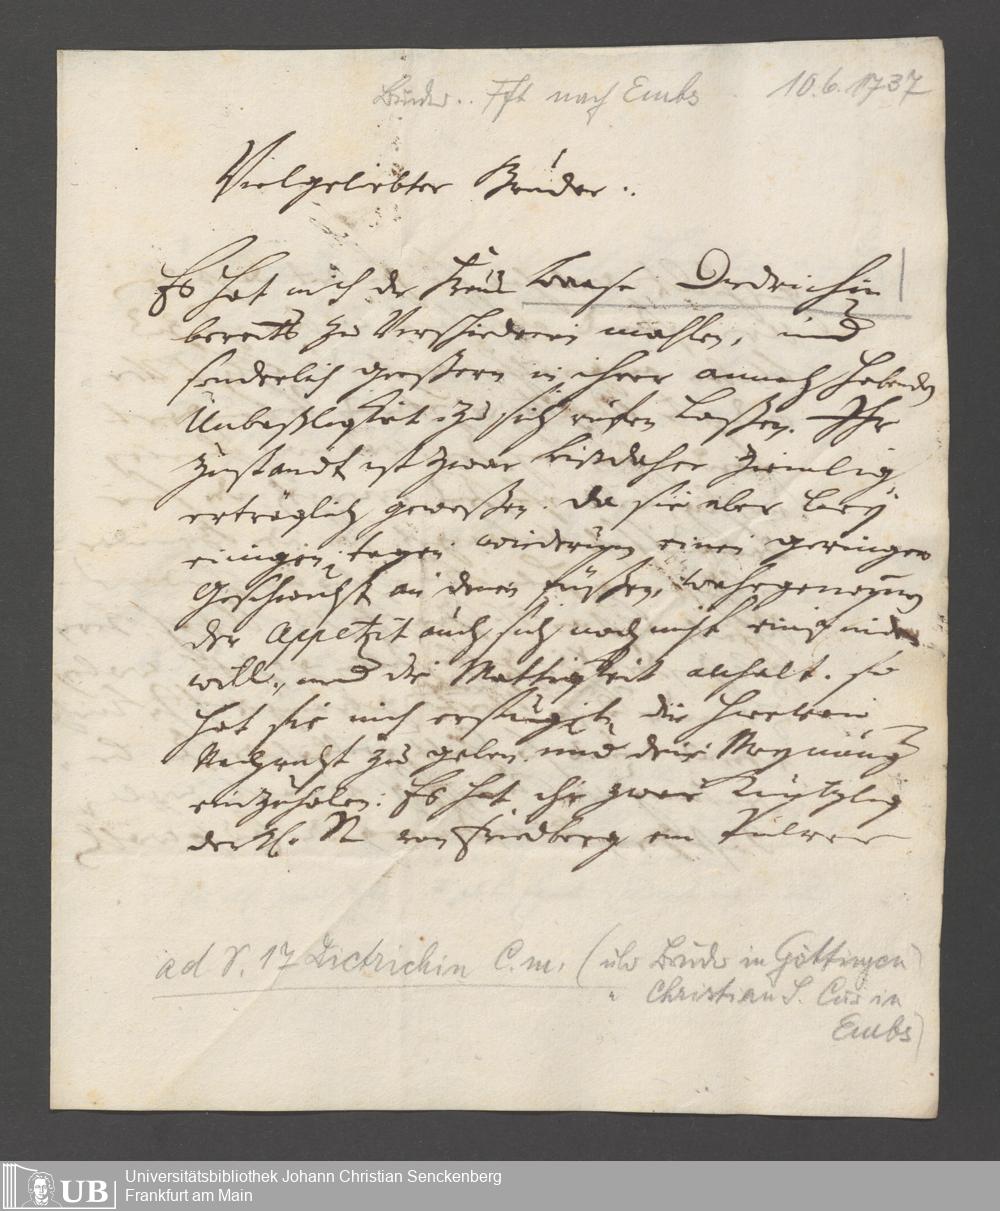 Bruder.. Fft nach Embs 10.6.1737
Vielgeliebter Bruder..
Es hat mich die Frau Baase Diedrichin
bereits zu verschiedenen mahlen, und
sonderlich gestern in ihrer annoch habenden
Unbäßligkeit zu sich rufen laßen. Ihr
zustandt ist zwar bißdaher zimlig
erträglich geweßen. da sie aber bey
einigen tagen wiederum einen geringen
Geschwulst an denen füßen, wahrgenommen
der Appetit auch sich noch nicht einfinden
will, und die Mattigkeit anhalt. so
hat sie mich ersucht, dir hievon
Nachricht zu geben und deine Meynung
einzuholen: Es hat ihr zwar
der H. N von Friedberg ein Pulver
ad S. 17 Dietrichin C.m. (üb Bruder in Göttingen)
" Christian S. Cur in
Embs)
Universitätsbibliothek Johann Christian Senckenberg
Frankfurt am Main
UB